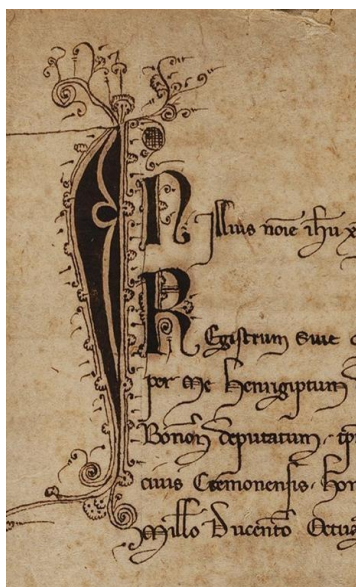 IN Illius noīe ihū x
Registrum siue
per me henrigiptum
Bonoñ deputatum
ciuis Cremonensis. hon
Millo Ducento Octua